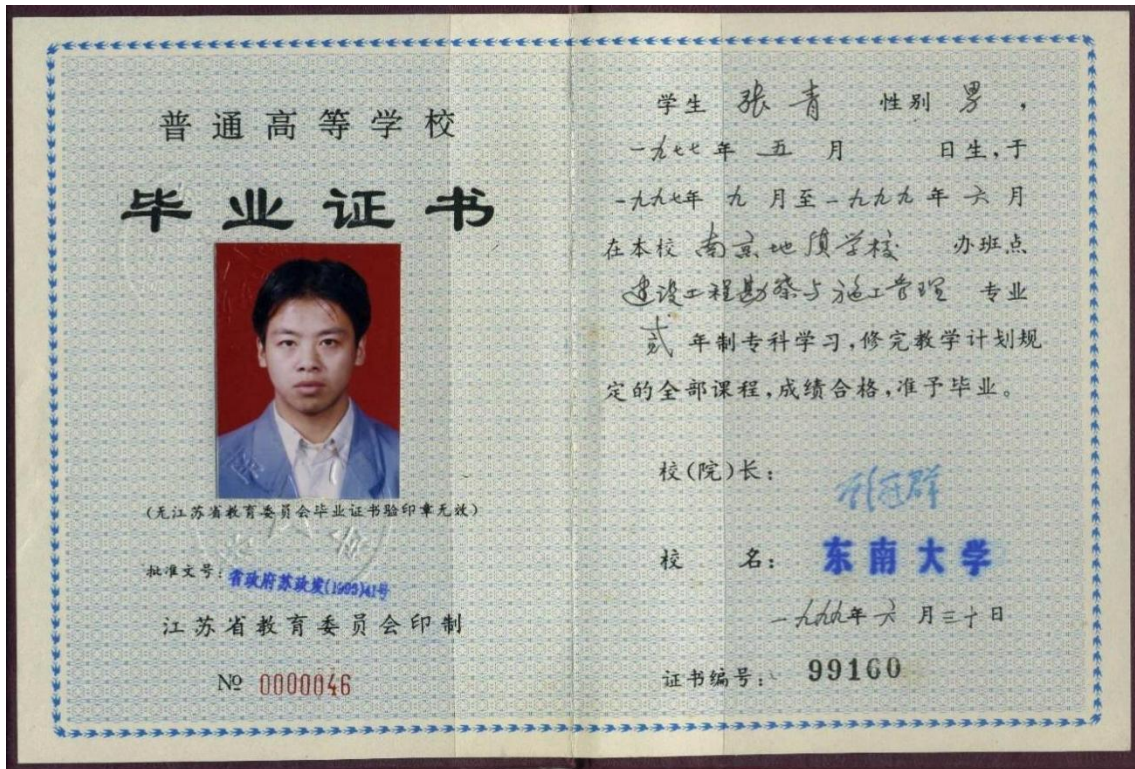 普通高等学校
毕业证书
(无江苏省教育委员会毕业证书验印章无效)
批准文号:省政府苏政发(1993)41号
江苏省教育委员会印制
№ 0000046
学生 张青 性别 男,
一九七七年 五 月 日生,于
一九九七年 九 月至一九九九年 六 月
在本校 南京地质学校 办班点
建设工程勘察与施工管理 专业
贰 年制专科学习,修完教学计划规
定的全部课程,成绩合格,准予毕业。
校(院)长:
校 名: 东南大学
一九九九年 六 月三十日
证书编号: 99160